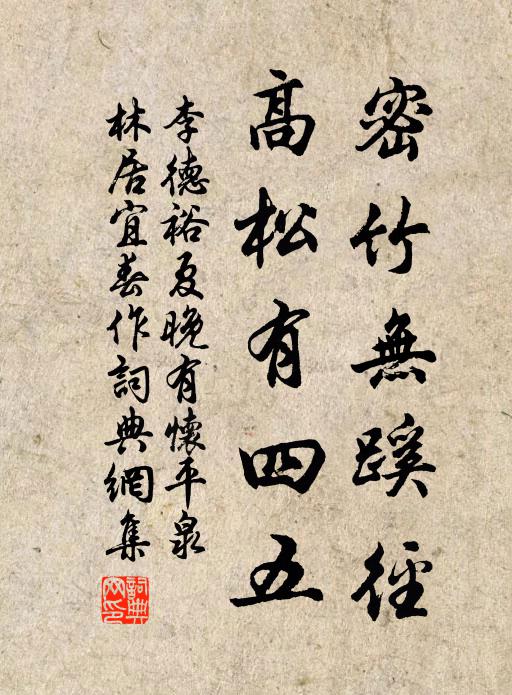 密竹無蹊徑
高松有四五
李德裕夏晚有懷平泉
林居宜春作詞典網集
詞典
网印